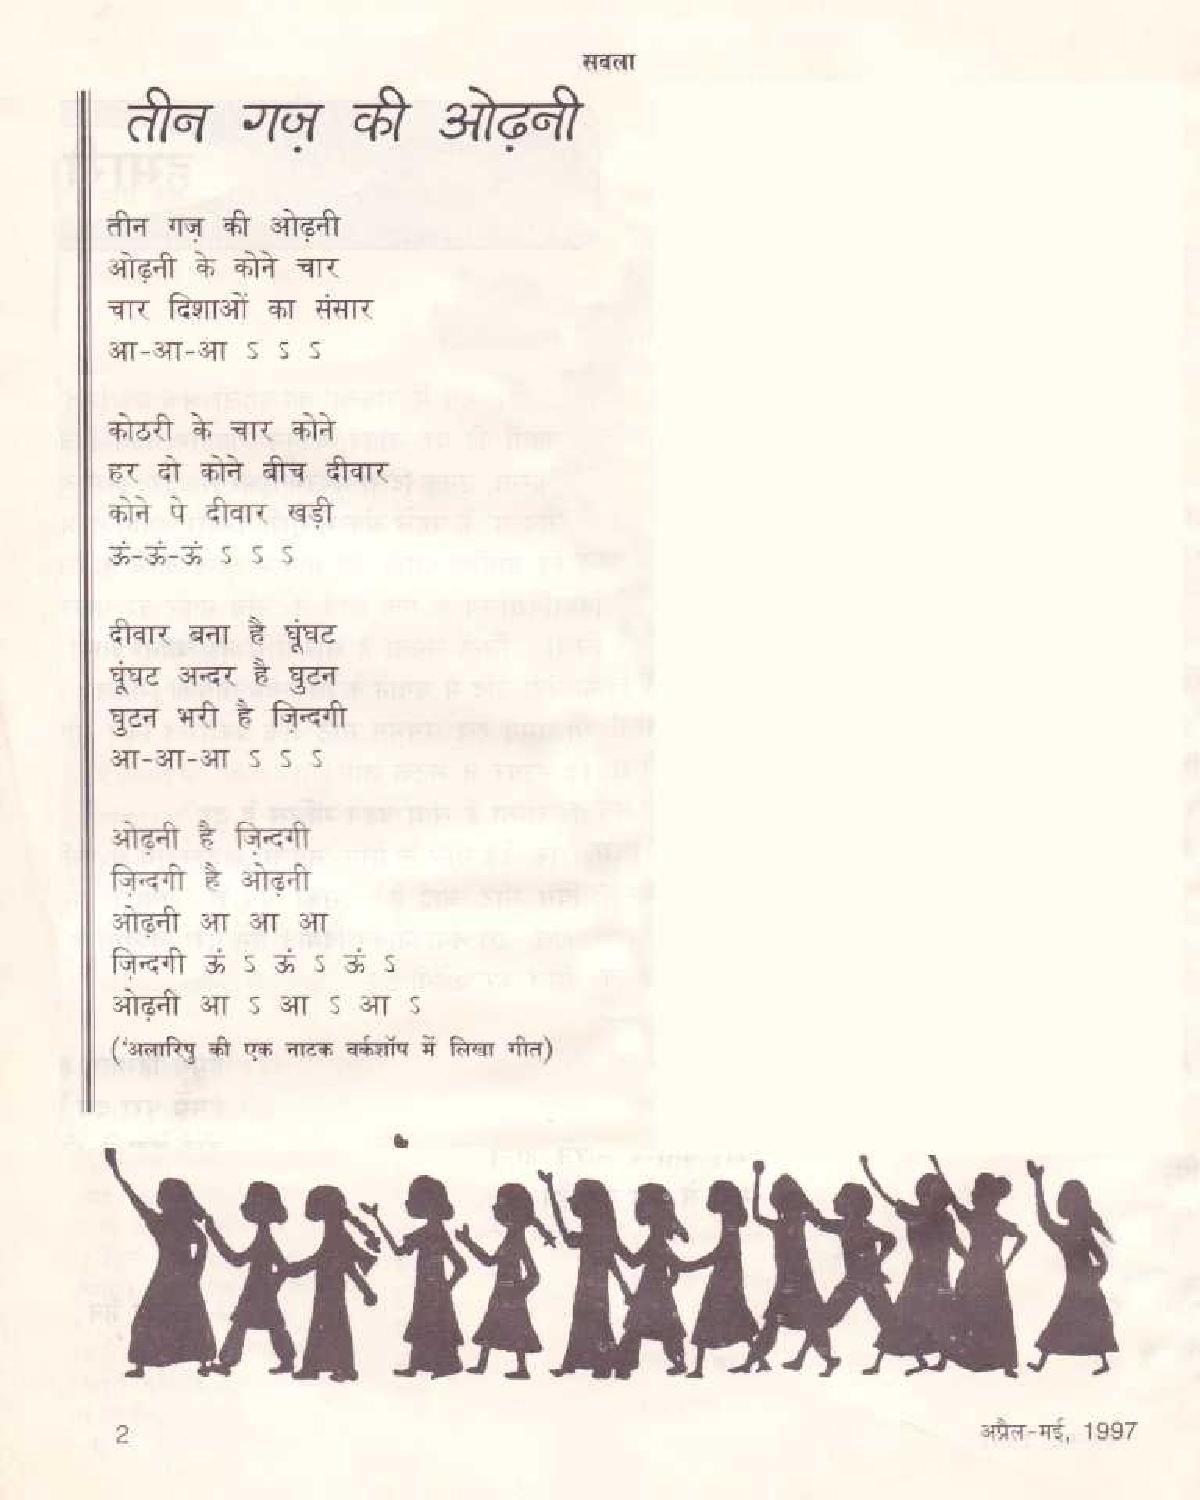 सबला
तीन गज़ की ओढ़नी
तीन गज़ की ओढ़नी
ओढ़नी के कोने चार
चार दिशाओं का संसार
आ-आ-आ ऽ ऽ ऽ
कोठरी के चार कोने
हर दो कोने बीच दीवार
कोने पे दीवार खड़ी
ऊं-ऊं-ऊं ऽ ऽ ऽ
दीवार बना है घूंघट
घूंघट अन्दर है घुटन
घुटन भरी है ज़िन्दगी
आ-आ-आ ऽ ऽ ऽ
ओढ़नी है ज़िन्दगी
ज़िन्दगी है ओढ़नी
ओढ़नी आ आ आ
ज़िन्दगी ऊं ऽ ऊं ऽ ऊं ऽ
ओढ़नी आ ऽ आ ऽ आ ऽ
('अलारिपु की एक नाटक वर्कशॉप में लिखा गीत)
2
अप्रैल-मई, 1997